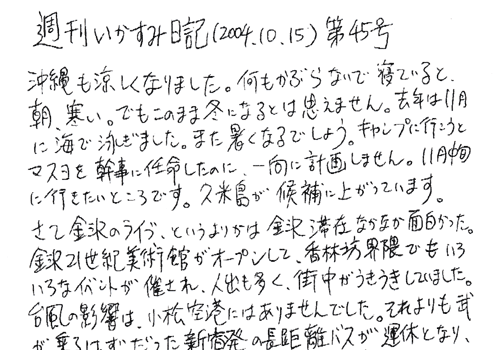 週刊いかすみ日記(2004.10.15) 第45号
沖縄も涼しくなりました。何もかぶらないで寝ていると、
朝、寒い。でもこのまま冬になるとは思えません。去年は11月
に海で泳ぎました。また暑くなるでしょう。キャンプに行こうと
マスヨを幹事に任命したのに、一向に計画しません。11月中旬
に行きたいところです。久米島が候補に上がっています。
さて金沢のライブ、というよりかは金沢滞在なかなか面白かった。
金沢21世紀美術館がオープンして、香林坊界隈でもいろ
いろなイベントが催され、人出も多く、街中がうきうきしていました。
台風の影響は、小松空港にはありませんでした。それよりも武
が乗るはずだった新宿発の長距離バスが運休となり、